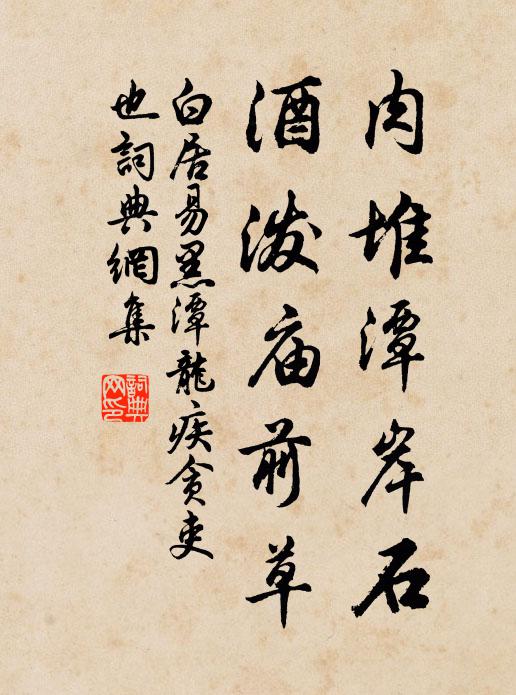 肉堆潭岸石
酒泼庙前草
白居易黑潭龍疾贪吏
也詞典網集
詞典网印